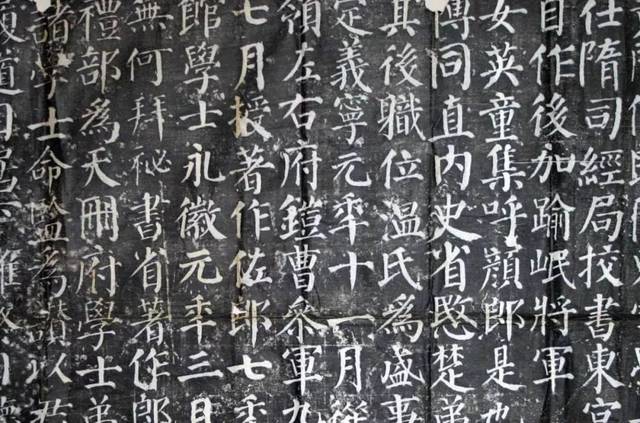 仕隋司經局挍書東宮
自作後加踰岷將軍
女英童集呼顏郎是也
博同直内史省愍楚弟
其後職位温氏爲盛事
定義寧元年十一月從
領左右府鎧曹參軍九
七月授著作佐郎七年
館學士永徽元年三月
無何拜祕書省著作郎
禮部爲天冊府學士弟
諸學士命監爲讃以君